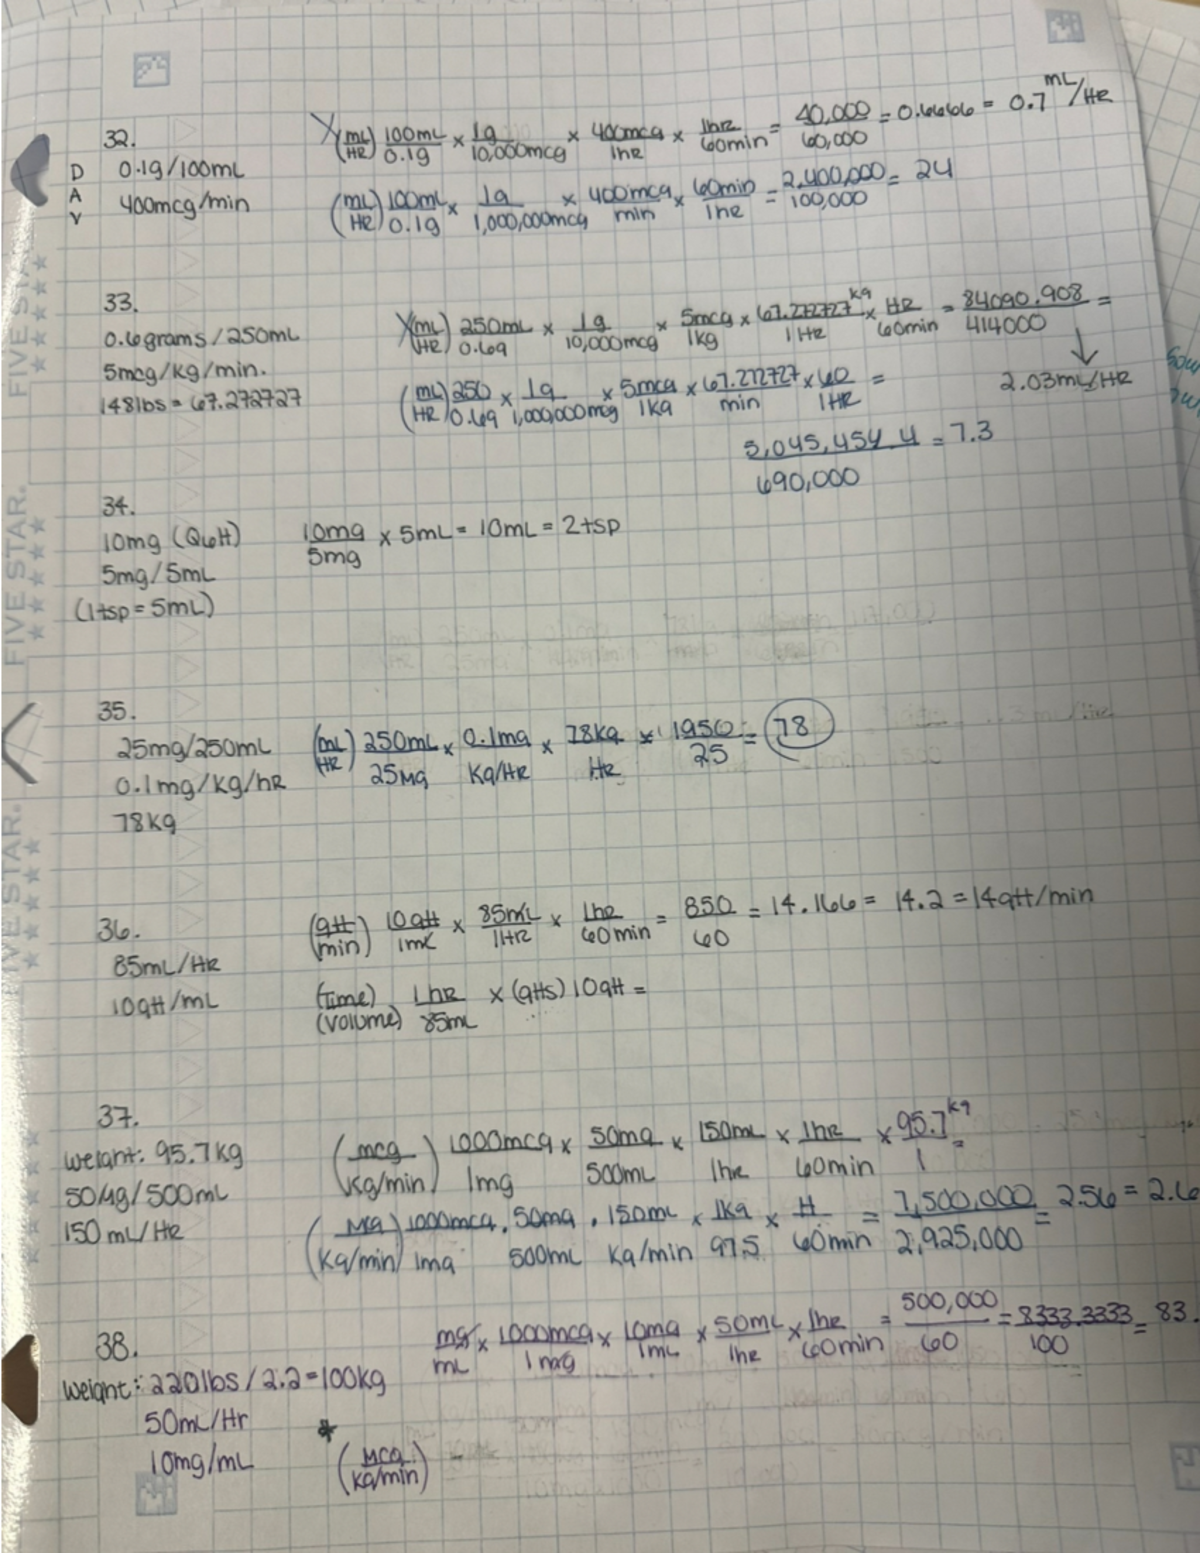 32.
X (mL/HR) 100mL/0.1g × 1g/10,000mcg × 400mcg/1hr × 1hr/60min = 40,000/60,000 = 0.6666 = 0.7 mL/HR
D
A
Y
0.1g/100mL
400mcg/min
(mL/HR) 100mL/0.1g × 1g/1,000,000mcg × 400mcg/min × 60min/1HR = 2,400,000/100,000 = 24
33.
0.6grams/250mL
5mcg/kg/min.
148lbs = 67.272727
X (mL/HR) 250mL/0.69 × 1g/10,000mcg × 5mcg/1kg × 67.272727kg/1HR × HR/60min = 84090.908/414000 =
2.03mL/HR
(mL/HR) 250/0.69 × 1g/1,000,000mcg × 5mcg/1kg × 67.272727/min × 60/1HR =
5,045,454.4/690,000 = 7.3
34.
10mg (Q6H)
5mg/5mL
(1tsp = 5mL)
10mg/5mg × 5mL = 10mL = 2tsp
35.
25mg/250mL
0.1mg/kg/hR
78kg
(mL/HR) 250mL/25Mg × 0.1mg/Kg/HR × 78kg/HR × 1950/25 = 78
36.
85mL/HR
10gtt/mL
(gtt/min) 10gtt/1mL × 85mL/1HR × 1hr/60min = 850/60 = 14.166 = 14.2 = 14gtt/min
(Time)/(volume) 1hR/85mL × (gtts) 10gtt =
37.
weight: 95.7kg
50Mg/500mL
150mL/HR
(mcg/kg/min) 1000mcg/1mg × 50mg/500mL × 150mL/1hr × 1hr/60min × 95.7kg/1 =
(Mcg/kg/min) 1000mcg/1mg . 50mg/500mL . 150mL/kg/min × 1kg/97.5 × H/60min = 7,500,000/2,925,000 = 2.56 = 2.6
38.
weight: 220lbs/2.2 = 100kg
50mL/Hr
10mg/mL
mg/mL × 1000mcg/1mg × 10mg/1mL × 50mL/1hr × 1hr/60min = 500,000/60 = 8333.3333/100 = 83.
* (Mcg/kg/min)
FIVE STAR.
FIVE STAR.
FIVE STAR.